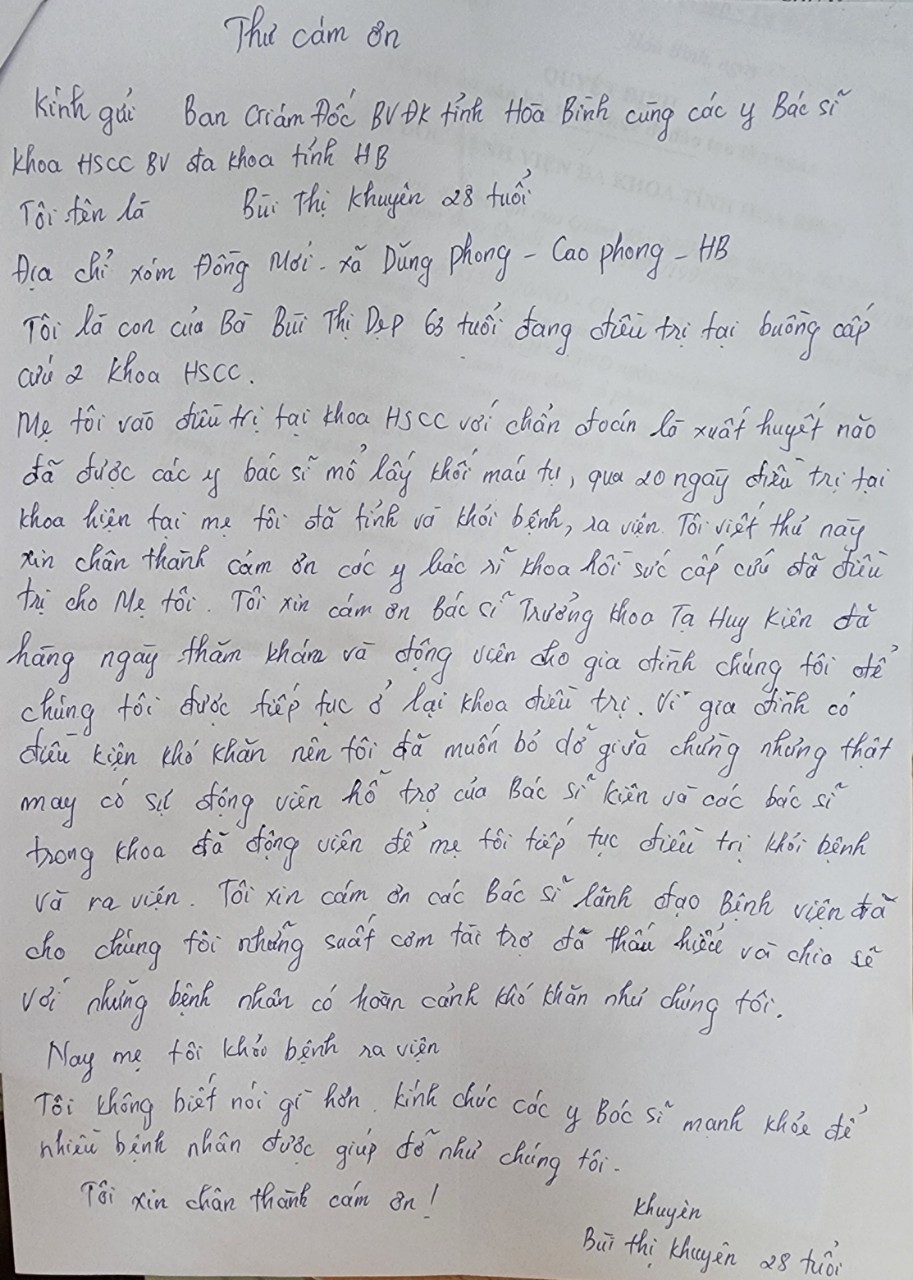 Thư cám ơn
Kính gửi Ban Giám Đốc BVĐK tỉnh Hoà Bình cùng các y Bác sĩ
khoa HSCC BV đa khoa tỉnh HB
Tôi tên là Bùi Thị Khuyên 28 tuổi
Địa chỉ xóm Đồng Mới - xã Dũng Phong - Cao phong - HB
Tôi là con của Bà Bùi Thị Dẹp 63 tuổi đang điều trị tại buồng cấp
cứu 2 khoa HSCC.
Mẹ tôi vào điều trị tại khoa HSCC với chẩn đoán là xuất huyết não
đã được các y bác sĩ mổ lấy khối máu tụ, qua 20 ngày điều trị tại
khoa hiện tại mẹ tôi đã tỉnh và khỏi bệnh, ra viện. Tôi viết thư này
xin chân thành cám ơn các y bác sĩ khoa hồi sức cấp cứu đã điều
trị cho Mẹ tôi. Tôi xin cám ơn Bác sĩ Trưởng khoa Tạ Huy Kiên đã
hàng ngày thăm khám và động viên cho gia đình chúng tôi để
chúng tôi được tiếp tục ở lại khoa điều trị. Vì gia đình có
điều kiện khó khăn nên tôi đã muốn bỏ dở giữa chừng nhưng thật
may có sự động viên hỗ trợ của Bác sĩ Kiên và các bác sĩ
trong khoa đã động viên để mẹ tôi tiếp tục điều trị khỏi bệnh
và ra viện. Tôi xin cám ơn các Bác sĩ lãnh đạo Bệnh viện đã
cho chúng tôi những suất cơm tài trợ đã thấu hiểu và chia sẽ
với những bệnh nhân có hoàn cảnh khó khăn như chúng tôi.
Nay mẹ tôi khỏi bệnh ra viện
Tôi không biết nói gì hơn. Kính chúc các y Bác sĩ mạnh khỏe để
nhiều bệnh nhân được giúp đỡ như chúng tôi.
Tôi xin chân thành cám ơn!
Khuyên
Bùi thị Khuyên 28 tuổi